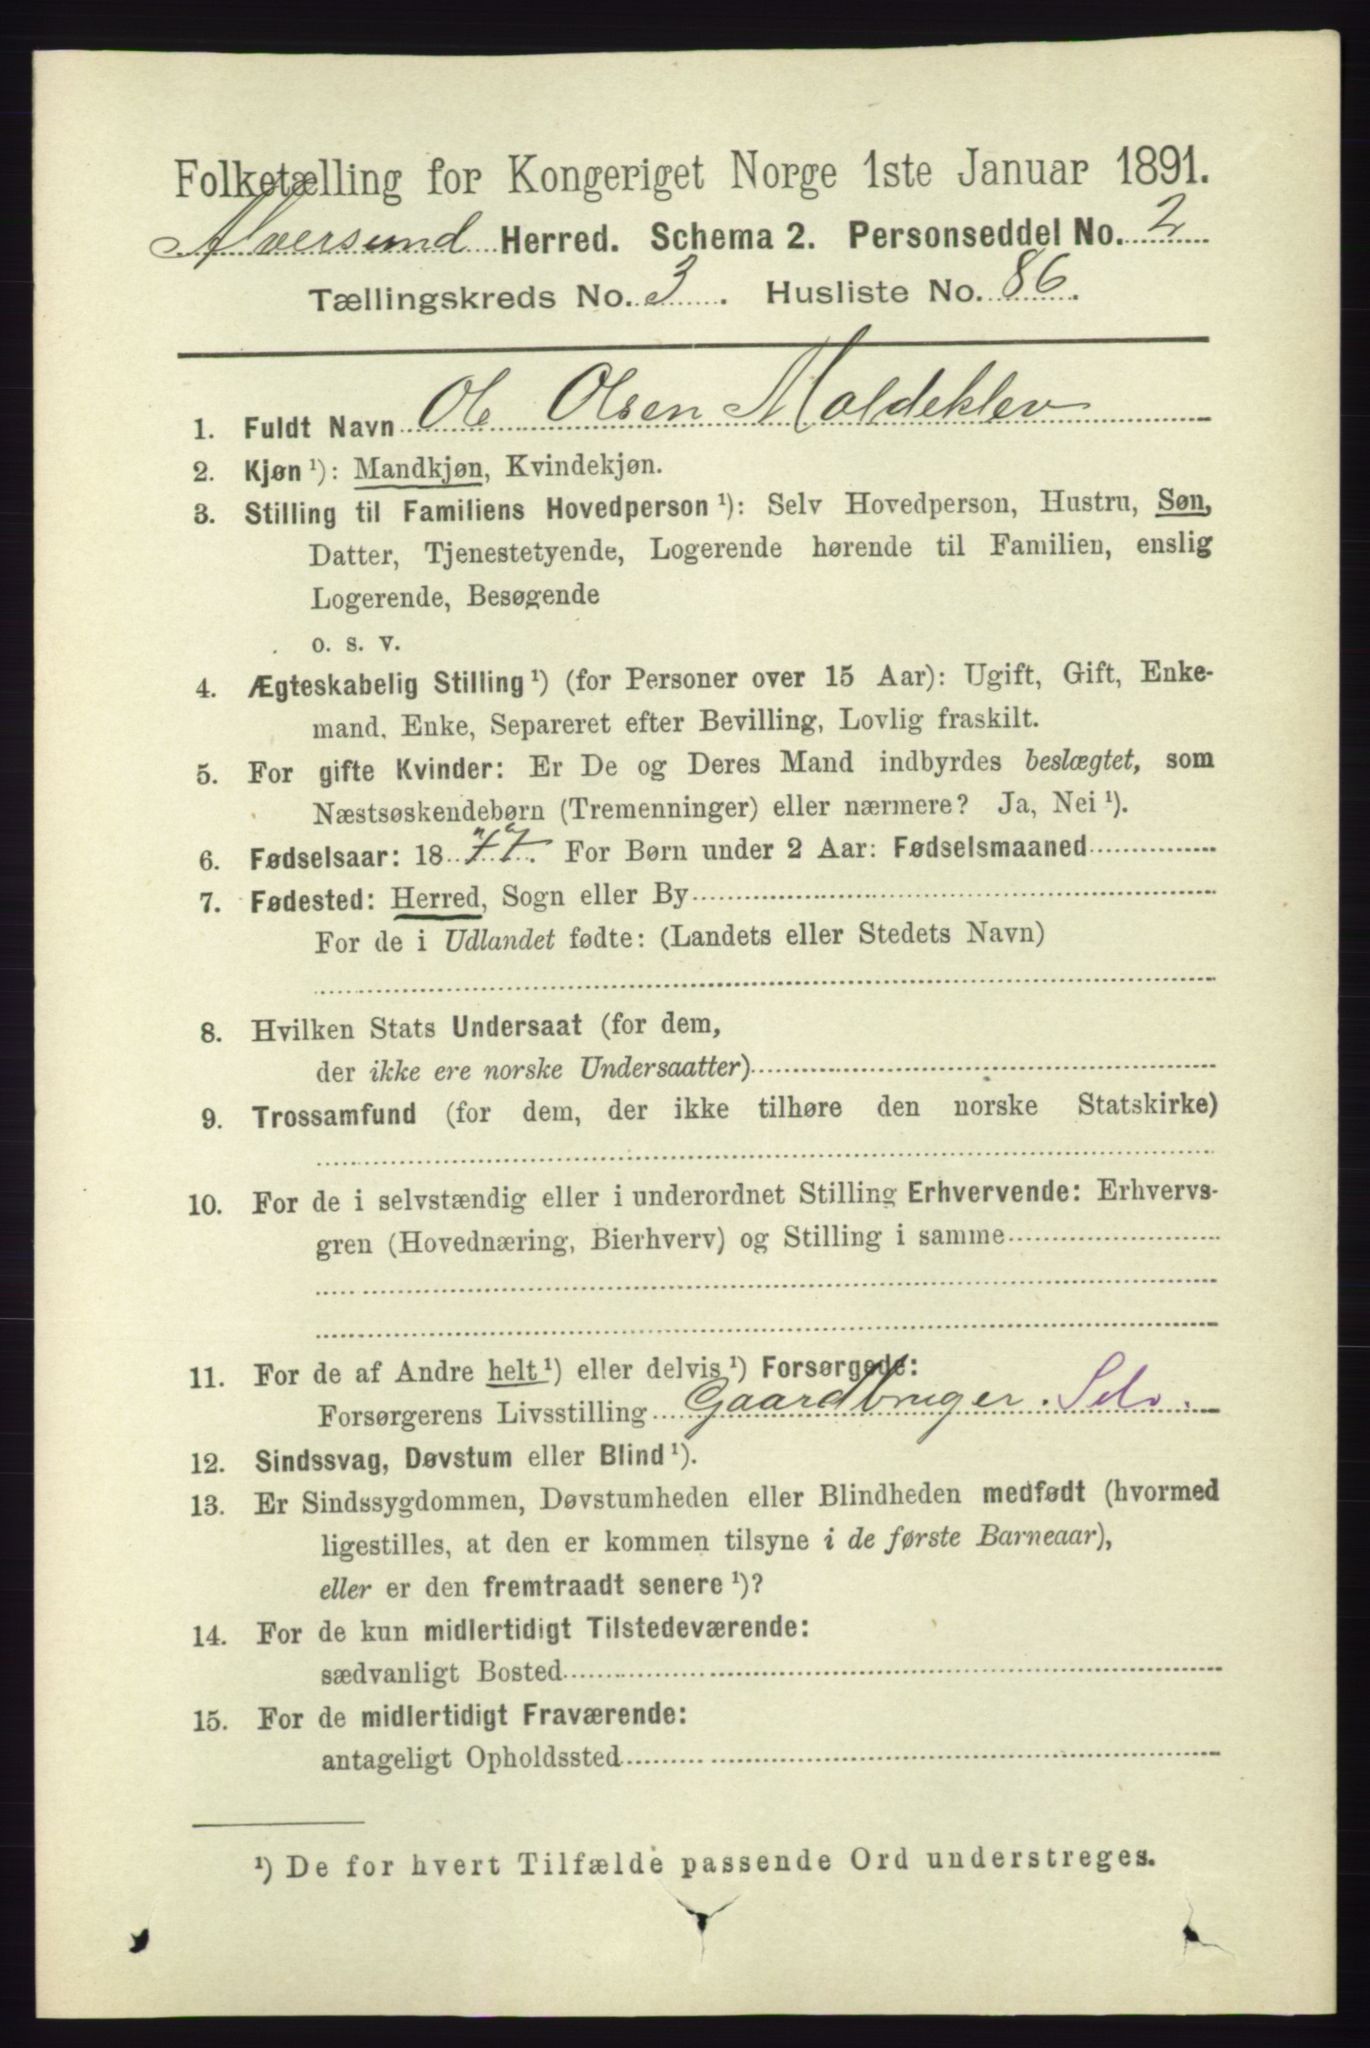 Folketælling for Kongeriget Norge 1ste Januar 1891.
Alversund Herred. Schema 2. Personseddel No. 2
Tællingskreds No. 3. Husliste No. 86.
1. Fuldt Navn Ole Olsen Moldeklev
2. Kjøn ¹): Mandkjøn, Kvindekjøn.
3. Stilling til Familiens Hovedperson ¹): Selv Hovedperson, Hustru, Søn,
Datter, Tjenestetyende, Logerende hørende til Familien, enslig
Logerende, Besøgende
o. s. v.
4. Ægteskabelig Stilling ¹) (for Personer over 15 Aar): Ugift, Gift, Enke-
mand, Enke, Separeret efter Bevilling, Lovlig fraskilt.
5. For gifte Kvinder: Er De og Deres Mand indbyrdes beslægtet, som
Næstsøskendebørn (Tremenninger) eller nærmere? Ja, Nei ¹).
6. Fødselsaar: 1877. For Børn under 2 Aar: Fødselsmaaned
7. Fødested: Herred, Sogn eller By
For de i Udlandet fødte: (Landets eller Stedets Navn)
8. Hvilken Stats Undersaat (for dem,
der ikke ere norske Undersaatter)
9. Trossamfund (for dem, der ikke tilhøre den norske Statskirke)
10. For de i selvstændig eller i underordnet Stilling Erhvervende: Erhvervs-
gren (Hovednæring, Bierhverv) og Stilling i samme
11. For de af Andre helt ¹) eller delvis ¹) Forsørgede:
Forsørgerens Livsstilling Gaardbruger. Selv.
12. Sindssvag, Døvstum eller Blind ¹).
13. Er Sindssygdommen, Døvstumheden eller Blindheden medfødt (hvormed
ligestilles, at den er kommen tilsyne i de første Barneaar),
eller er den fremtraadt senere ¹)?
14. For de kun midlertidigt Tilstedeværende:
sædvanligt Bosted
15. For de midlertidigt Fraværende:
antageligt Opholdssted
¹) De for hvert Tilfælde passende Ord understreges.